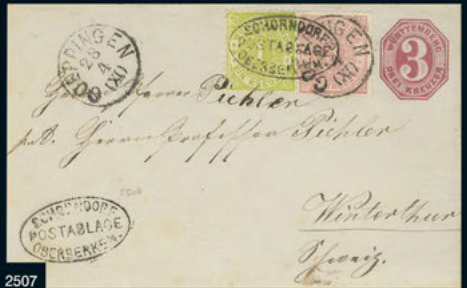 GOEPPINGEN
28
4
(XI)
SCHORNDORF
POSTABLAGE
OBERBERKEN.
GOEPPINGEN
(XI)
WÜRTTEMBERG
3
DREI KREUZER
Herrn Pichler
p.Ad. Herrn Professor Pichler
Winterthur
Schweiz.
SCHORNDORF
POSTABLAGE
OBERBERKEN.
2507